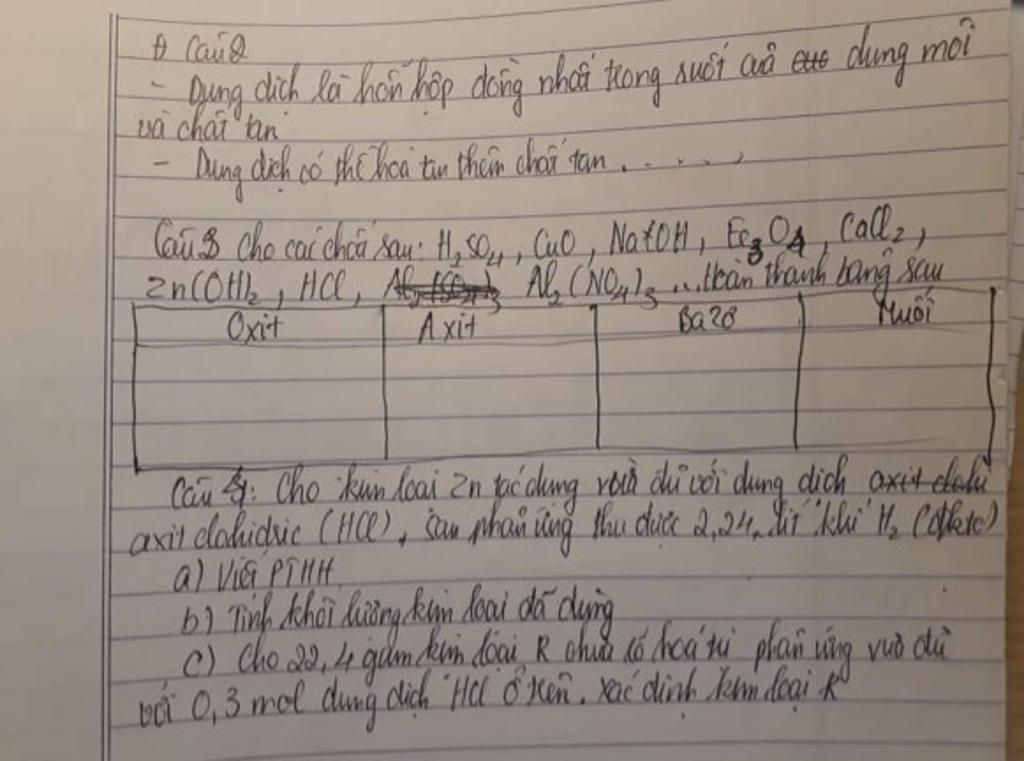 Đ Câu 2
- Dung dịch là hỗn hộp đồng nhất trong suốt cuả dung môi
và chất tan
- Dung dịch có thể hoà tan thêm chất tan . . . . . .
Câu 3 Cho các chất sau: H₂SO₄, CuO, NaOH, Fe₃O₄, CaCl₂,
Zn(OH)₂, HCl, Al₂(NO₄)₃ ...Hoàn thành bảng sau
Oxit Axit Bazơ Muối
Câu 4: Cho kim loại Zn tác dụng vừa đủ với dung dịch
axit clohiđric (HCl), sau phản ứng thu được 2,24 lít khí H₂ (
a) Viết PTHH
b) Tính khối lượng kim loại đã dụng
c) Cho 22,4 gam kim loại R chưa có hoá trị phản ứng vừa đủ
với 0,3 mol dung dịch HCl ở trên. xác định kim loại R